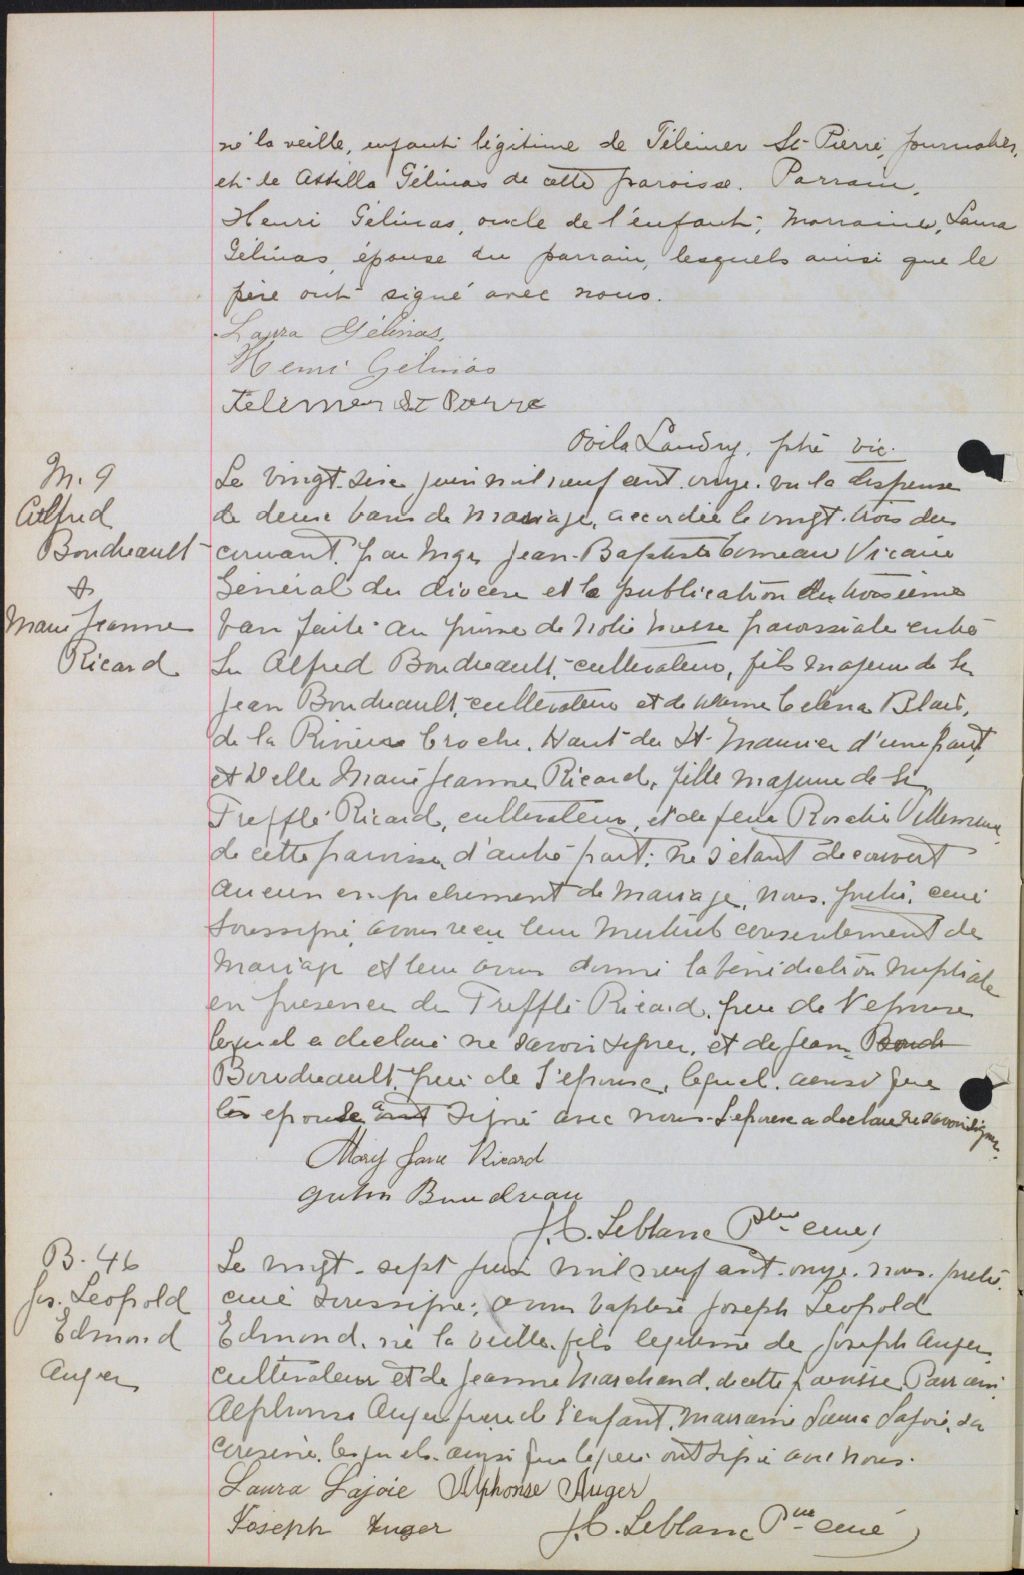 né la veille, enfant légitime de Télémer St-Pierre, journalier,
et de Attilla Gélinas de cette paroisse. Parrain,
Henri Gélinas, oncle de l'enfant; Marraine, Laura
Gélinas, épouse du parrain, lesquels ainsi que le
père ont signé avec nous.
Laura Gélinas.
Henri Gélinas
Telemer St Pierre
Ovila Landry, ptre vic.
M. 9
Alfred
Boudreault
&
Marie Jeanne
Ricard
Le vingt-six juin mil neuf cent onze. vu la dispense
de deux bans de mariage, accordée le vingt-trois du
courant par Mgr Jean-Baptiste Comeau Vicaire
Général du diocèse et la publication du troisième
ban faite au prône de notre messe paroissiale entre
Sr Alfred Boudreault, cultivateur, fils majeur de Sr
Jean Boudreault, cultivateur et de Celena Blais,
de la Rivière Croche, Haut du St-Maurice d'une part,
et Delle Marie Jeanne Ricard, fille majeure de Sr
Trefflé Ricard, cultivateur, et de feue Rosalie Villemure
de cette paroisse, d'autre part; ne s'étant découvert
aucun empêchement de mariage, nous, prêtre, curé
soussigné, avons reçu leur mutuel consentement de
mariage et leur avons donné la bénédiction nuptiale
en présence de Trefflé Ricard, père de l'épouse
lequel a déclaré ne savoir signer, et de Jean Boud
Boudreault, père de l'épouse, lequel ainsi que
les épouse ont signé avec nous. L'épouse a déclaré ne savoir signer.
Mary Jane Ricard
John Boudreau
J. C. Leblanc Ptre curé
B. 46
Jos. Leopold
Edmond
Auger
Le vingt-sept juin mil neuf cent onze. nous, prêtre
curé soussigné, avons baptisé Joseph Leopold
Edmond, né la veille, fils légitime de Joseph Auger,
cultivateur et de Jeanne Marchand, de cette paroisse. Parrain
Alphonse Auger frère de l'enfant, marraine Laura Lajoie, sa
cousine, lesquels ainsi que le père ont signé avec nous.
Laura Lajoie Alphonse Auger
Joseph Auger J. C. Leblanc Ptre curé